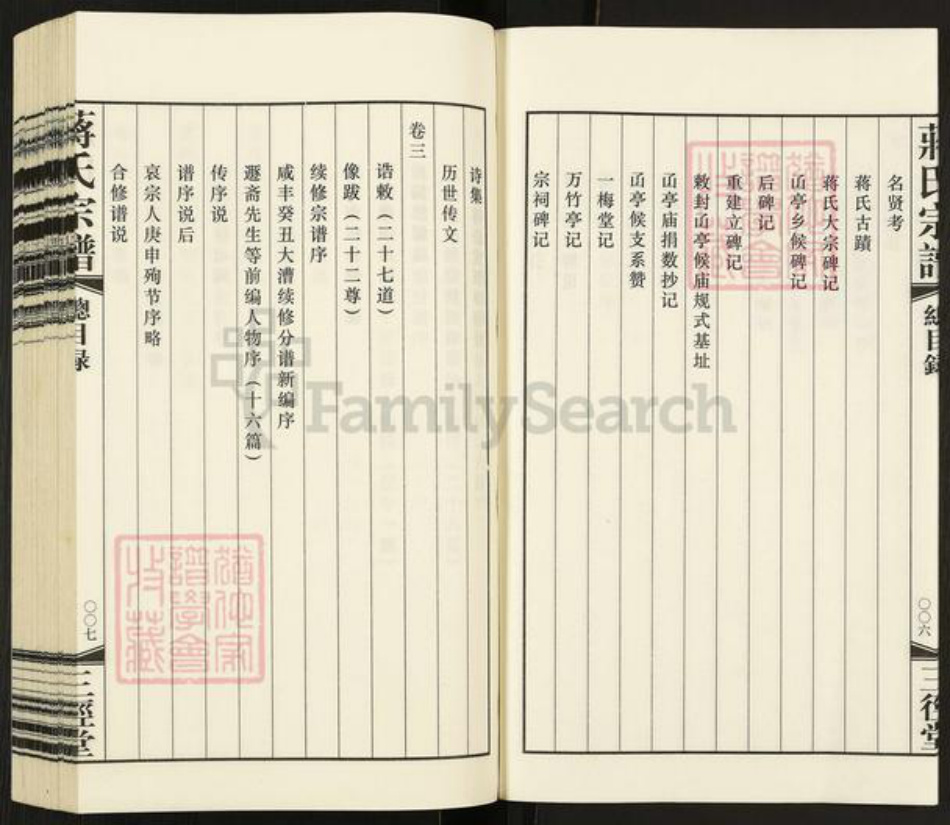 蒋氏宗譜
總目録
〇〇六
三徑堂
名贤考
蒋氏古蹟
蒋氏大宗碑记
䢺亭乡候碑记
后碑记
重建立碑记
敕封䢺亭候庙规式基址
䢺亭庙捐数抄记
䢺亭候支系赞
一梅堂记
万竹亭记
宗祠碑记
诗集
历世传文
卷三
诰敕（二十七道）
像跋（二十二尊）
续修宗谱序
咸丰癸丑大漕续修分谱新编序
遯斋先生等前编人物序（十六篇）
传序说
谱序说后
哀宗人庚申殉节序略
合修谱说
蒋氏宗譜
總目録
〇〇七
三徑堂
FamilySearch
譜學會
收藏